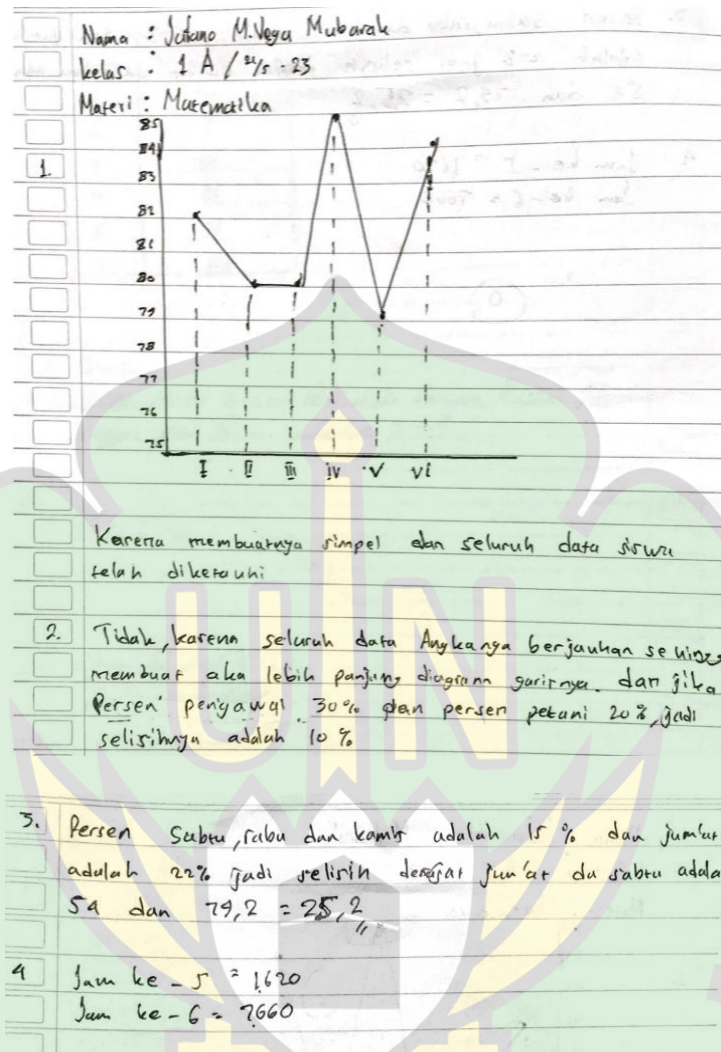 Nama : Jufano M. Vega Mubarak
kelas : 1 A / 22/5 - 23
Materi : Matematika
1.
85
84
83
82
81
80
79
78
77
76
75
I II III IV V VI
Karena membuatnya simpel dan seluruh data siswa
telah diketauhi
2. Tidak, karena seluruh data Angkanya berjauhan sehingg
membuat aka lebih panjang diagram garisnya. dan jika
Persen pengawai 30% dan persen petani 20%, jadi
selisihnya adalah 10 %
3. Persen Sabtu, rabu dan kamis adalah 15 % dan jum'at
adalah 22% jadi selisih derajat jum'at da sabtu adala
54 dan 79,2 = 25,2
4 Jam ke - 5 = 1620
Jam ke - 6 = 7660
UIN